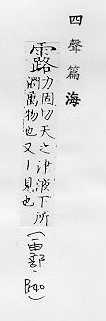 四聲篇海
露 力固切天之津液下所
潤萬物也又丨見也
(雨部